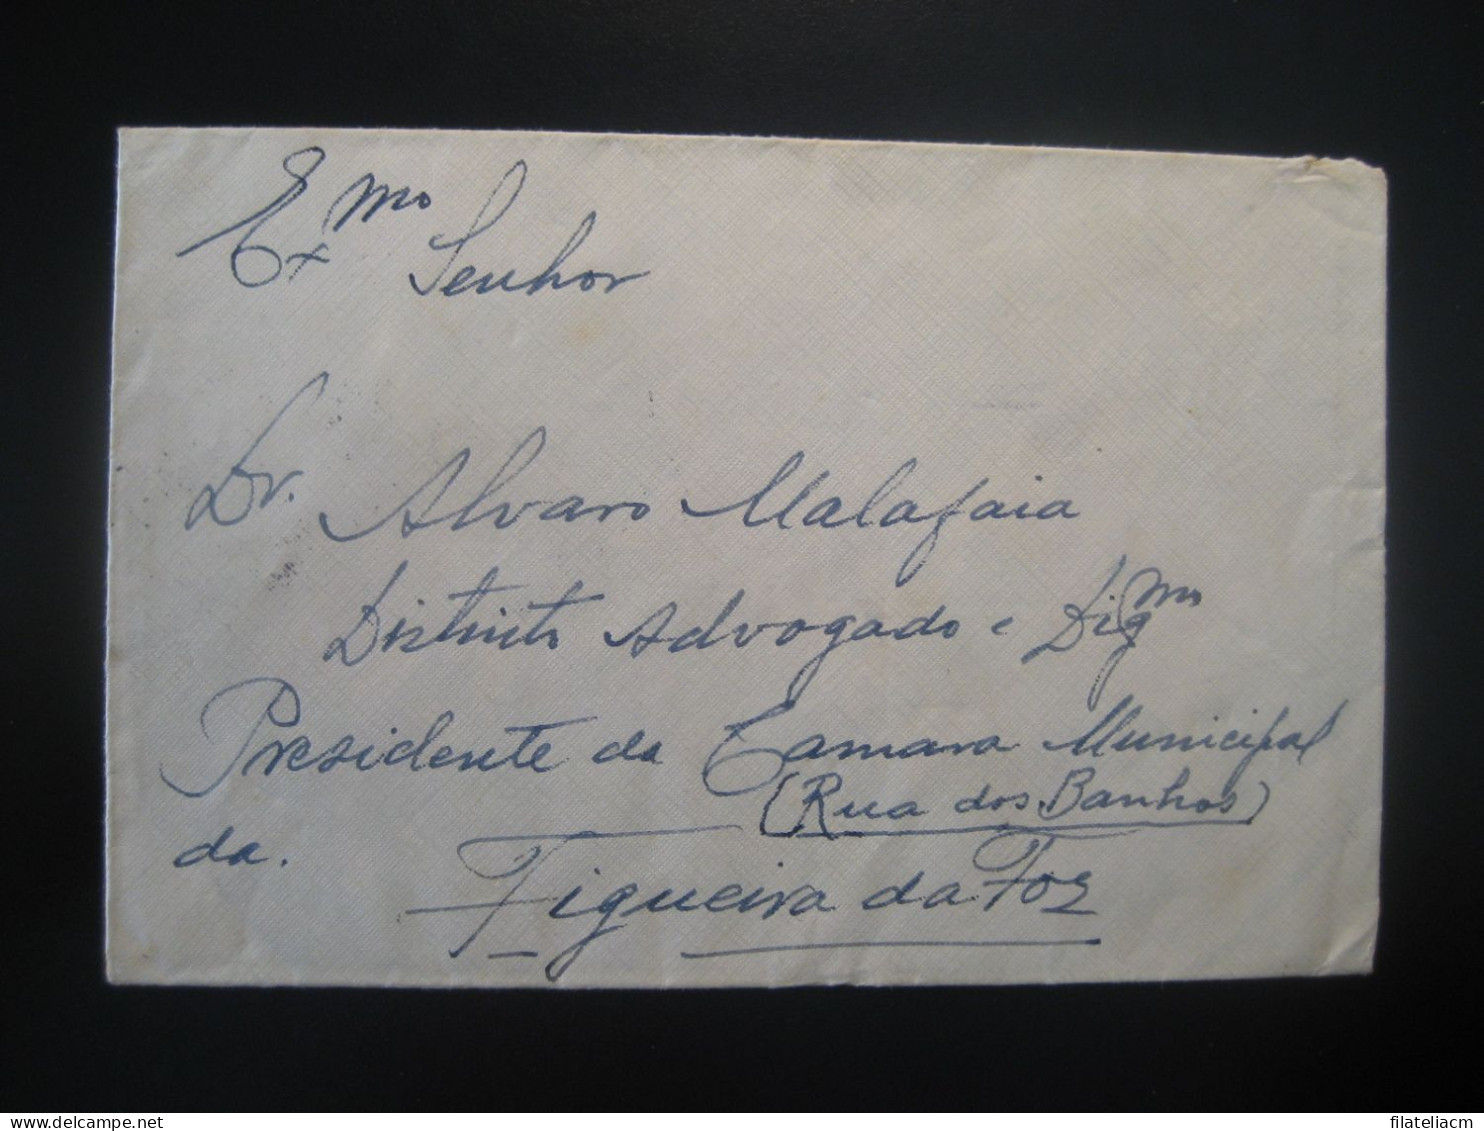 Exmo Senhor
Dr. Alvaro Malafaia
Distinto Advogado e Digmo
Presidente da Camara Municipal
(Rua dos Banhos)
da.
Figueira da Foz
delcampe.net
filateliacm